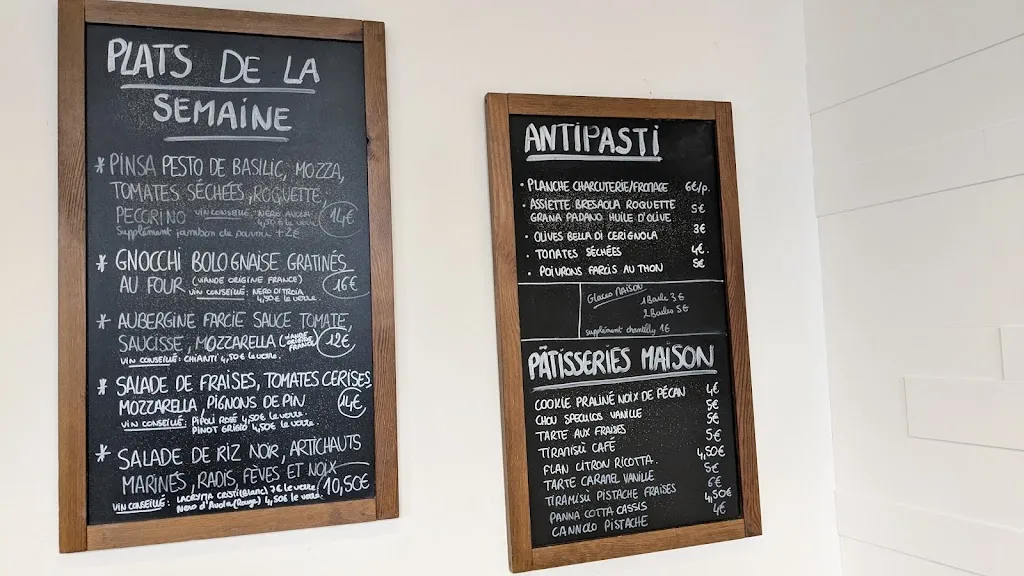 PLATS DE LA
SEMAINE
* PINSA PESTO DE BASILIC, MOZZA,
TOMATES SÉCHÉES, ROQUETTE,
PECORINO VIN CONSEILLÉ: NERO AVOLA 14€
4,50€ le verre
Supplément jambon de parme +2€
* GNOCCHI BOLOGNAISE GRATINÉS
AU FOUR (VIANDE ORIGINE FRANCE) 16€
VIN CONSEILLÉ: NERO DI TROIA
4,50€ le verre
* AUBERGINE FARCIE SAUCE TOMATE,
SAUCISSE, MOZZARELLA (VIANDE ORIGINE FRANCE) 12€
VIN CONSEILLÉ: CHIANTI 4,50€ le verre.
* SALADE DE FRAISES, TOMATES CERISES,
MOZZARELLA, PIGNONS DE PIN 14€
VIN CONSEILLÉ: PIPOLI ROSÉ 4,50€ le verre
PINOT GRIGIO 4,50€ le verre
* SALADE DE RIZ NOIR, ARTICHAUTS
MARINES, RADIS, FÈVES ET NOIX 10,50€
VIN CONSEILLÉ: LACRYMA CRISTI (Blanc) 7€ le verre
Nero d'Avola (Rouge) 4,50€ le verre
ANTIPASTI
• PLANCHE CHARCUTERIE/FROMAGE 6€/p.
• ASSIETTE BRESAOLA ROQUETTE
GRANA PADANO HUILE D'OLIVE 5€
• OLIVES BELLA DI CERIGNOLA 3€
• TOMATES SÉCHÉES 4€.
• POIVRONS FARCIS AU THON 5€
Glaces MAISON
1 Boule 3€
2 Boules 5€
supplément chantilly 1€
PÂTISSERIES MAISON
COOKIE PRALINÉ NOIX DE PÉCAN 4€
CHOU SPECULOS VANILLE 5€
TARTE AUX FRAISES 5€
TIRAMISU CAFÉ 5€
FLAN CITRON RICOTTA. 4,50€
TARTE CARAMEL VANILLE 5€
TIRAMISÙ PISTACHE FRAISES 6€
PANNA COTTA CASSIS 4,50€
CANNOLO PISTACHE 4€